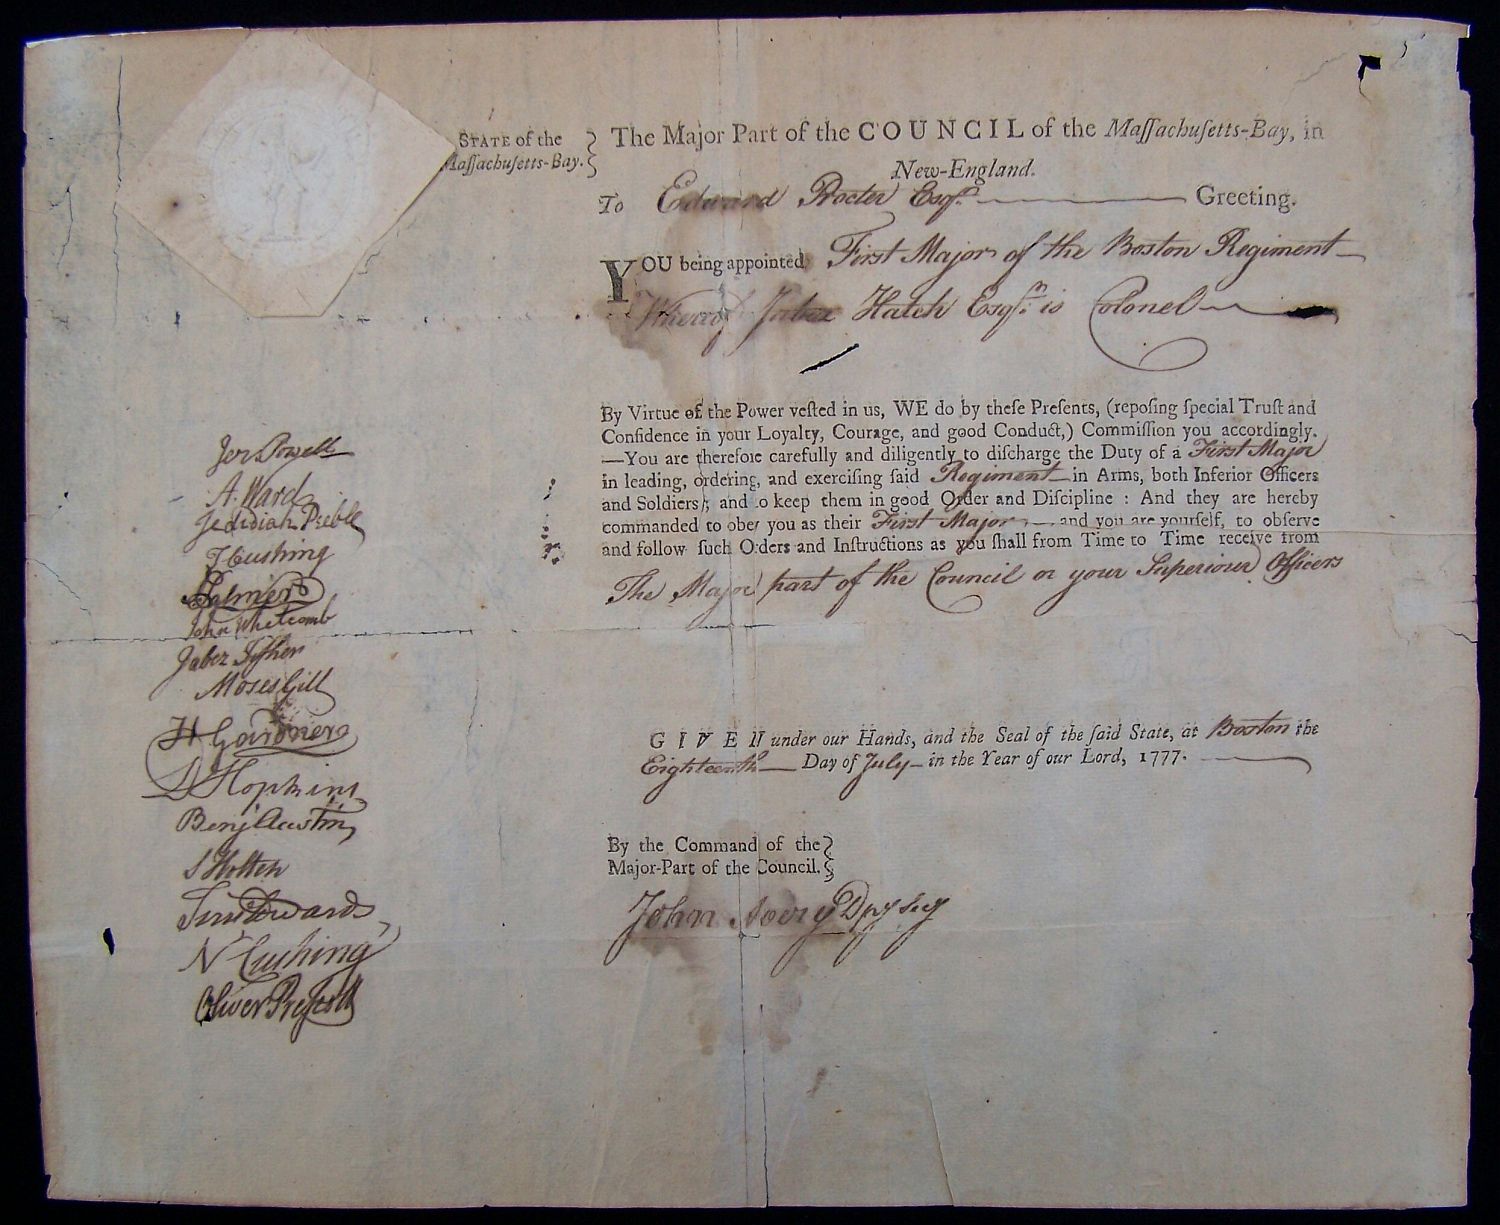 STATE of the
Maſſachuſetts-Bay.
The Major Part of the COUNCIL of the Maſſachuſetts-Bay, in
New-England.
To Edward Procter Esqr. Greeting.
YOU being appointed First Major of the Boston Regiment
Whereof Jabez Hatch Esqr. is Colonel
By Virtue of the Power veſted in us, WE do by theſe Preſents, (repoſing ſpecial Truſt and
Confidence in your Loyalty, Courage, and good Conduct,) Commiſſion you accordingly.
—You are therefore carefully and diligently to diſcharge the Duty of a First Major
in leading, ordering, and exerciſing ſaid Regiment in Arms, both Inferior Officers
and Soldiers; and to keep them in good Order and Diſcipline : And they are hereby
commanded to obey you as their First Major and you are yourſelf, to obſerve
and follow ſuch Orders and Inſtructions as you ſhall from Time to Time receive from
The Major part of the Council or your Superiour Officers
GIVEN under our Hands, and the Seal of the ſaid State, at Boston the
Eighteenth Day of July in the Year of our Lord, 1777.
By the Command of the
Major-Part of the Council.
John Avery Dpy Secy
Jer Powell
A. Ward
Jedidiah Preble
T Cushing
Palmer
John Whetcomb
Jabez Fisher
Moses Gill
H Gardner
S Hopkins
Benj Austin
S Holten
Tim Edwards
N Cushing
Oliver Preſcott